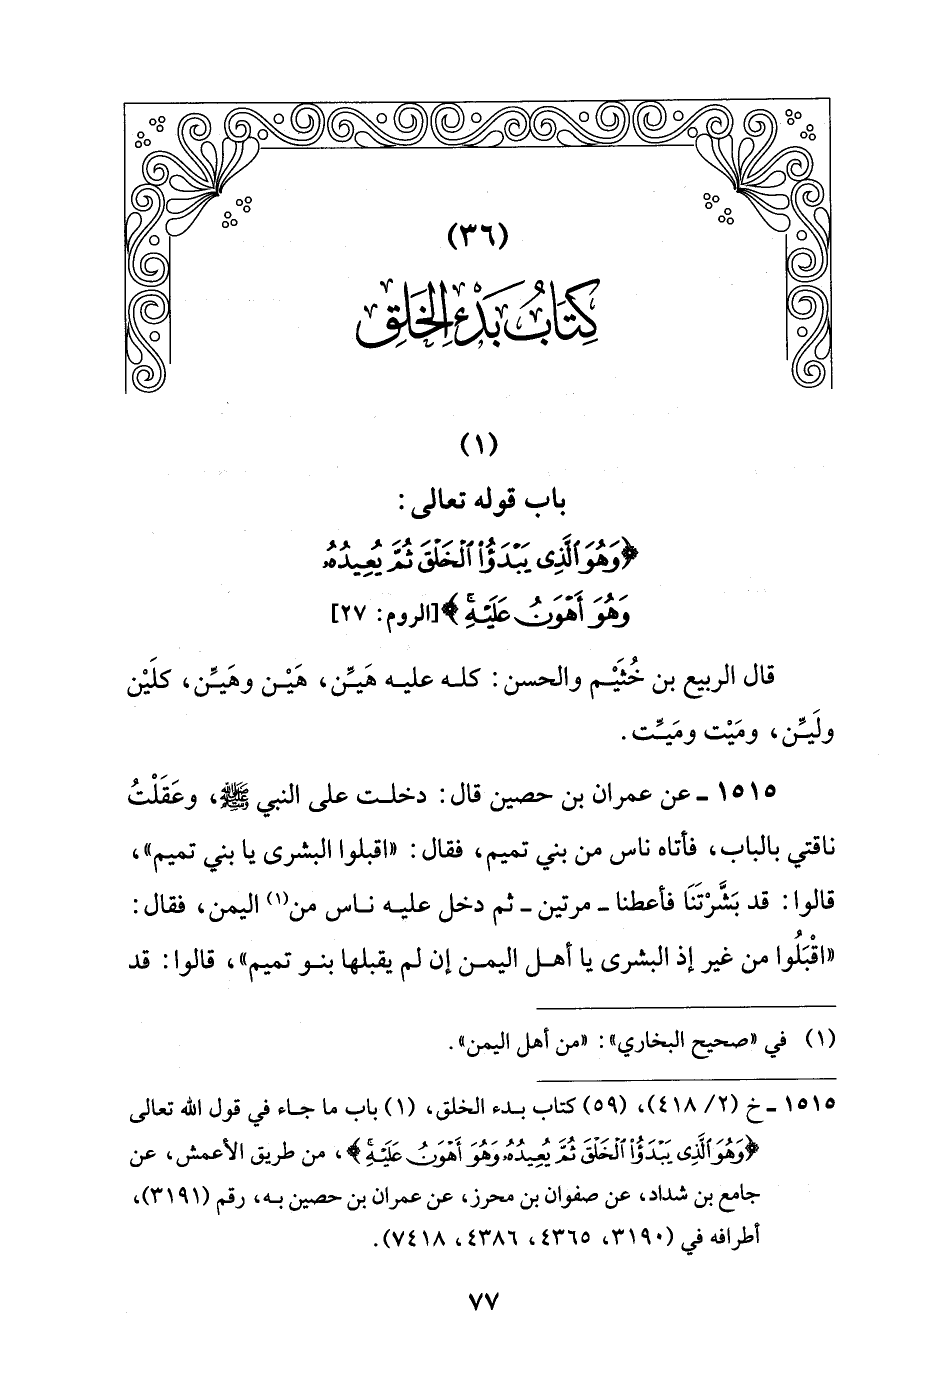 (٣٦)
كِتَابُ بَدْءِ الْخَلِقِ
(١)
باب قوله تعالى:
﴿وَهُوَ ٱلَّذِى يَبْدَؤُا۟ ٱلْخَلْقَ ثُمَّ يُعِيدُهُۥ
وَهُوَ أَهْوَنُ عَلَيْهِ ۚ﴾ [الروم: ٢٧]
قال الربيع بن خُثَيْم والحسن: كله عليه هَيِّن، هَيْن وهَيِّن، كلَيْن
ولَيِّن، ومَيْت ومَيِّت.
١٥١٥ ـ عن عمران بن حصين قال: دخلت على النبي ﷺ، وعَقَلْتُ
ناقتي بالباب، فأتاه ناس من بني تميم، فقال: «اقبلوا البشرى يا بني تميم»،
قالوا: قد بَشَّرْتَنَا فأعطنا ـ مرتين ـ ثم دخل عليه ناس من(١) اليمن، فقال:
«اقْبَلُوا من غير إذ البشرى يا أهل اليمن إن لم يقبلها بنو تميم»، قالوا: قد
(١) في «صحيح البخاري»: «من أهل اليمن».
١٥١٥ ـ خ (٢/ ٤١٨)، (٥٩) كتاب بدء الخلق، (١) باب ما جاء في قول الله تعالى
﴿وَهُوَ ٱلَّذِى يَبْدَؤُا۟ ٱلْخَلْقَ ثُمَّ يُعِيدُهُۥ وَهُوَ أَهْوَنُ عَلَيْهِ ۚ﴾، من طريق الأعمش، عن
جامع بن شداد، عن صفوان بن محرز، عن عمران بن حصين به، رقم (٣١٩١)،
أطرافه في (٣١٩٠، ٤٣٦٥، ٤٣٨٦، ٧٤١٨).
٧٧